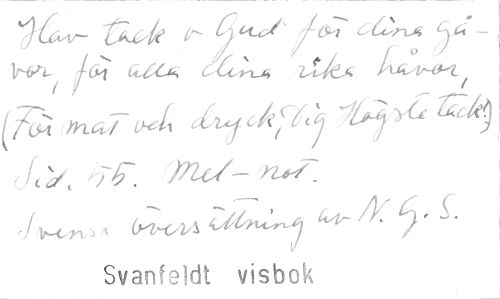 Hav tack o Gud för dina gå-
vor, för alla dina rika håvor,
(För mat och dryck, Dig Högste tack!)
Sid. 55. Mel-not.
Svensk översättning av N. G. S.
Svanfeldt visbok